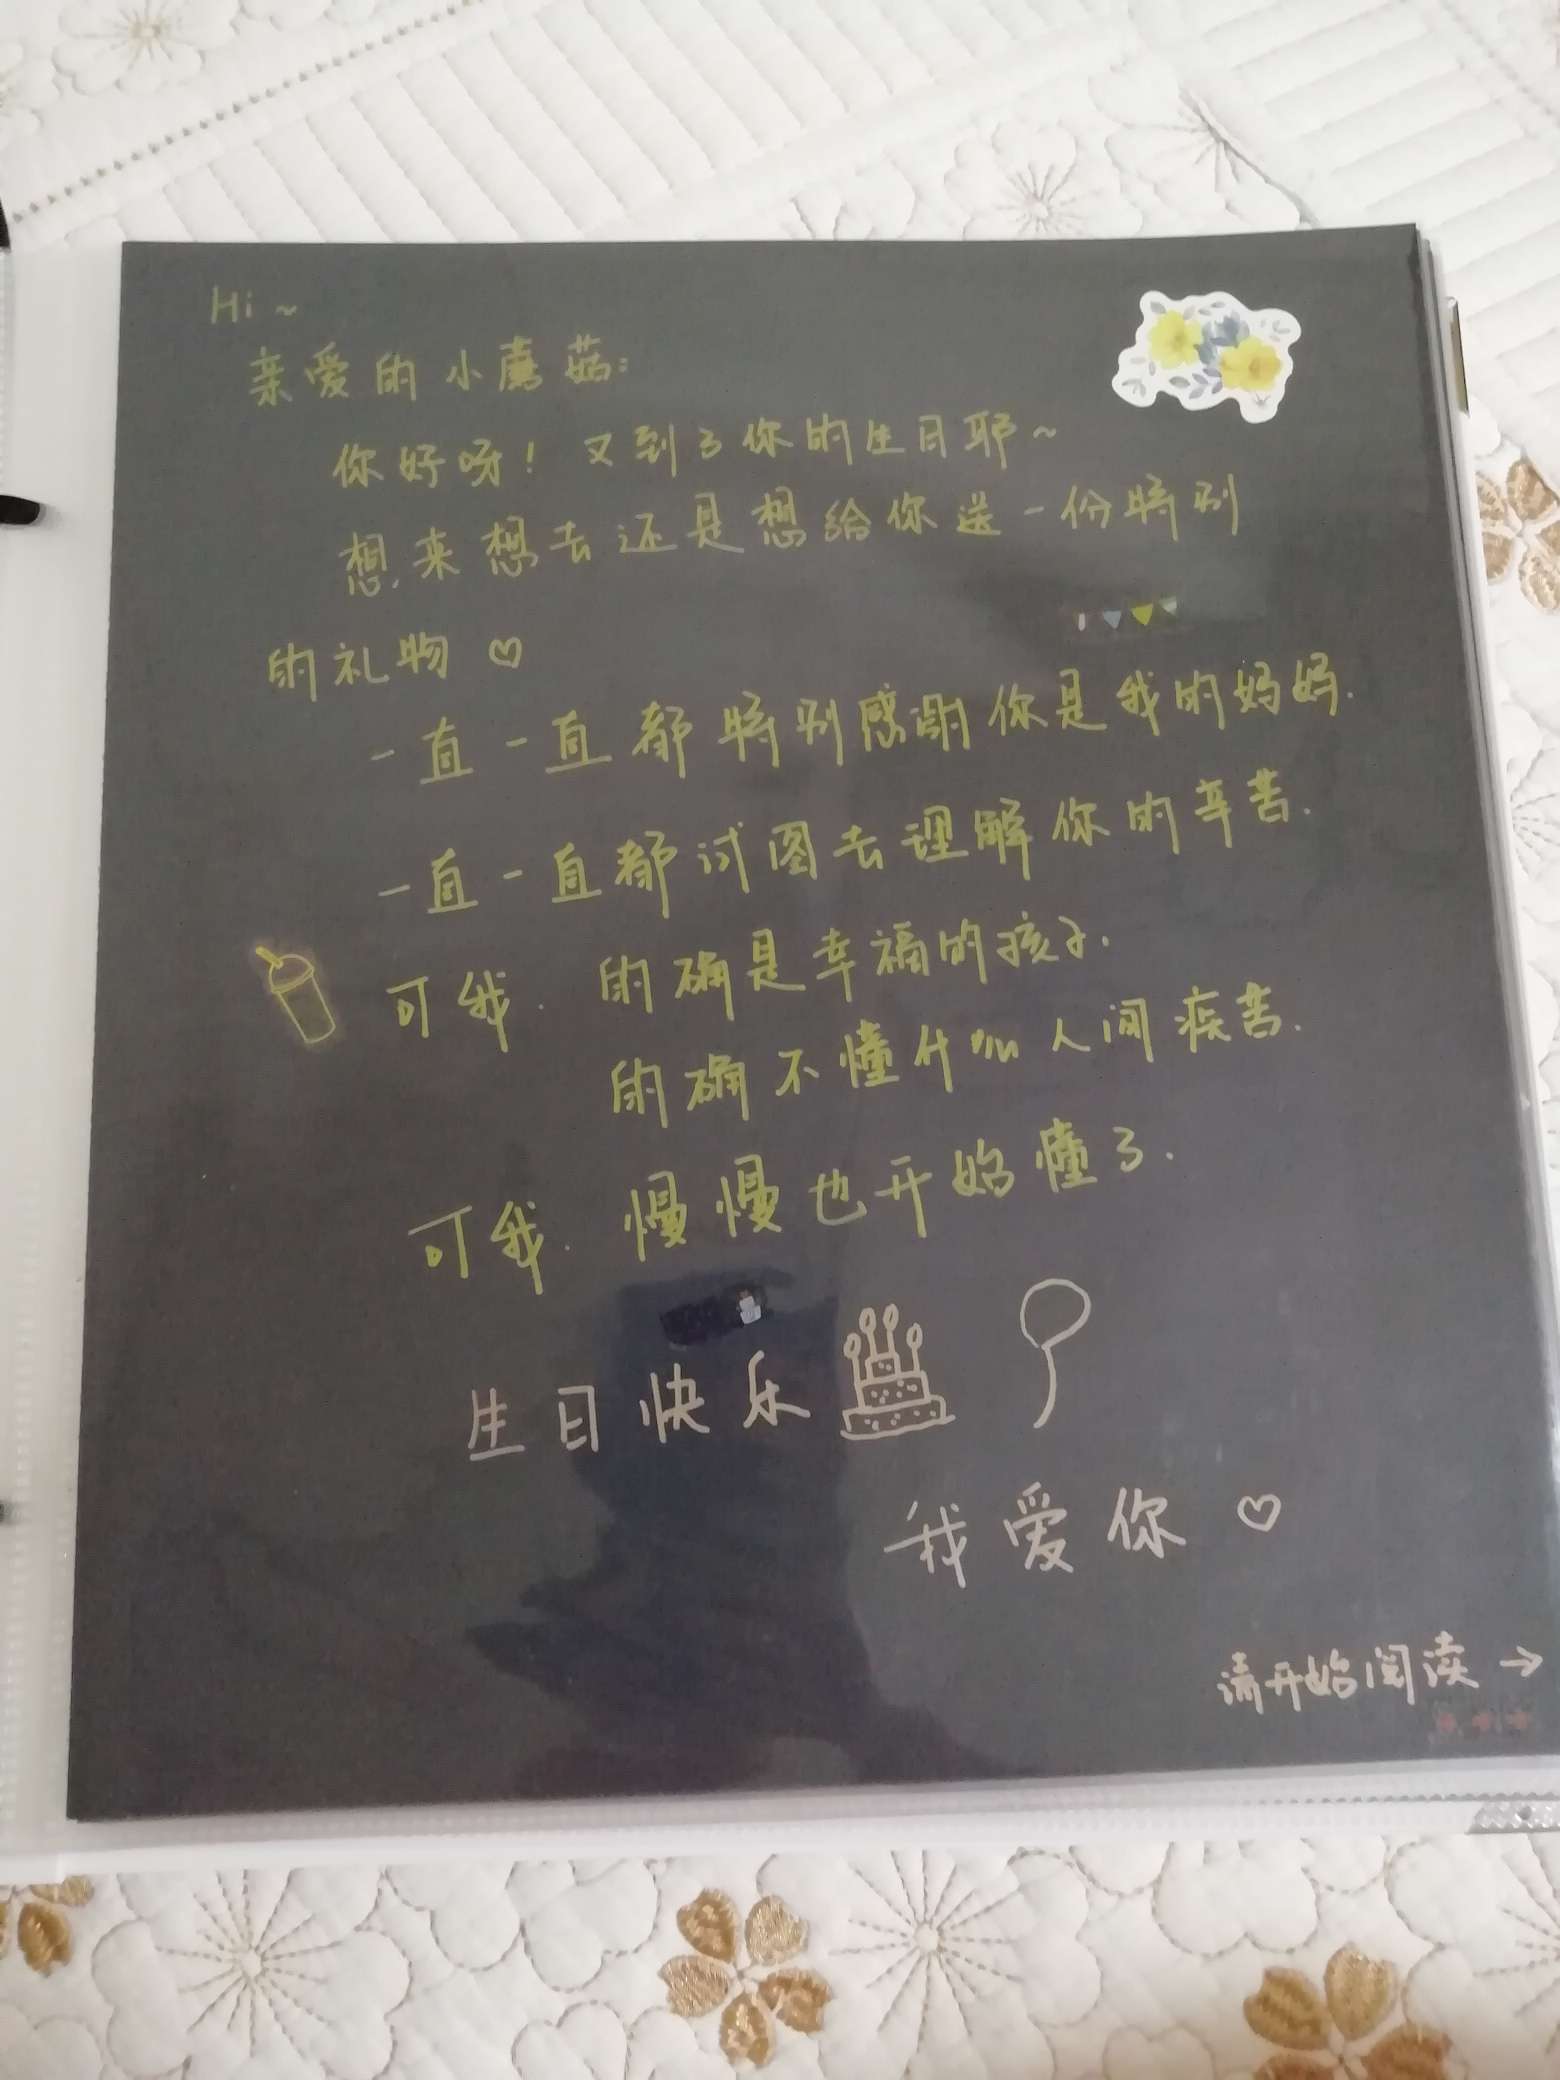 Hi~
亲爱的小蘑菇：
你好呀！又到了你的生日耶~
想来想去还是想给你送一份特别
的礼物♡
一直一直都特别感谢你是我的妈妈.
一直一直都试图去理解你的辛苦.
可我. 的确是幸福的孩子.
的确不懂什么人间疾苦.
可我. 慢慢也开始懂了.
生日快乐
我爱你♡
请开始阅读→